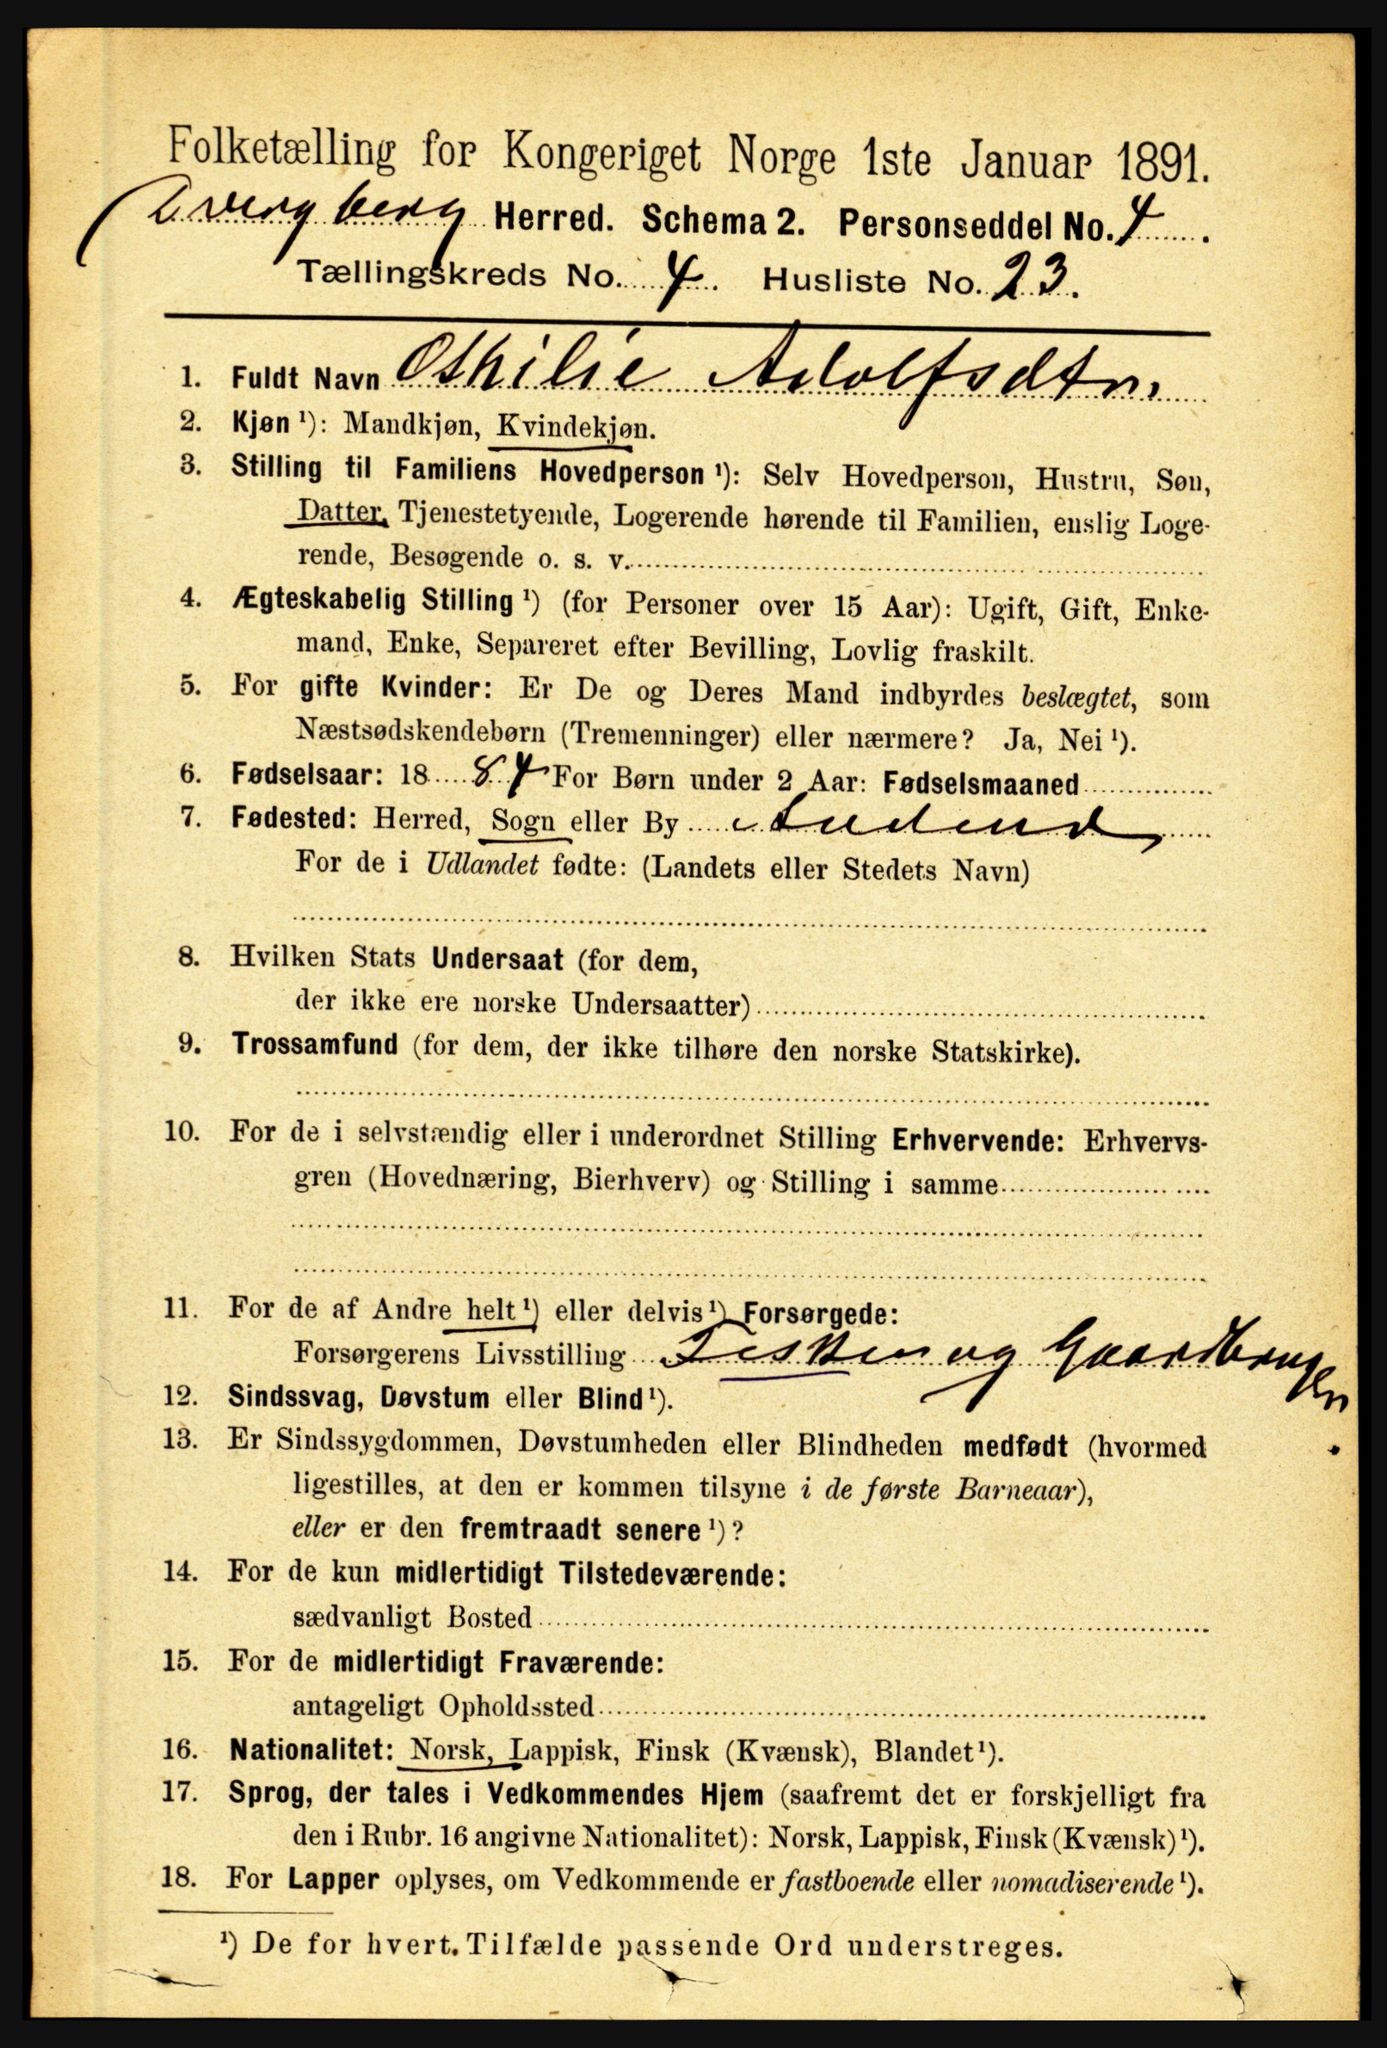 Folketælling for Kongeriget Norge 1ste Januar 1891.
Dvergberg Herred. Schema 2. Personseddel No. 4.
Tællingskreds No. 4. Husliste No. 23.
1. Fuldt Navn Othilie Adolfsdtr.
2. Kjøn ¹): Mandkjøn, Kvindekjøn.
3. Stilling til Familiens Hovedperson ¹): Selv Hovedperson, Hustru, Søn,
Datter, Tjenestetyende, Logerende hørende til Familien, enslig Loge-
rende, Besøgende o. s. v.
4. Ægteskabelig Stilling ¹) (for Personer over 15 Aar): Ugift, Gift, Enke-
mand, Enke, Separeret efter Bevilling, Lovlig fraskilt.
5. For gifte Kvinder: Er De og Deres Mand indbyrdes beslægtet, som
Næstsødskendebørn (Tremenninger) eller nærmere? Ja, Nei ¹).
6. Fødselsaar: 1884 For Børn under 2 Aar: Fødselsmaaned
7. Fødested: Herred, Sogn eller By
For de i Udlandet fødte: (Landets eller Stedets Navn)
8. Hvilken Stats Undersaat (for dem,
der ikke ere norske Undersaatter)
9. Trossamfund (for dem, der ikke tilhøre den norske Statskirke).
10. For de i selvstændig eller i underordnet Stilling Erhvervende: Erhvervs-
gren (Hovednæring, Bierhverv) og Stilling i samme
11. For de af Andre helt ¹) eller delvis ¹) Forsørgede:
Forsørgerens Livsstilling Fisker og Gaardbruger.
12. Sindssvag, Døvstum eller Blind ¹).
13. Er Sindssygdommen, Døvstumheden eller Blindheden medfødt (hvormed
ligestilles, at den er kommen tilsyne i de første Barneaar),
eller er den fremtraadt senere ¹)?
14. For de kun midlertidigt Tilstedeværende:
sædvanligt Bosted
15. For de midlertidigt Fraværende:
antageligt Opholdssted
16. Nationalitet: Norsk, Lappisk, Finsk (Kvænsk), Blandet ¹).
17. Sprog, der tales i Vedkommendes Hjem (saafremt det er forskjelligt fra
den i Rubr. 16 angivne Nationalitet): Norsk, Lappisk, Finsk (Kvænsk) ¹).
18. For Lapper oplyses, om Vedkommende er fastboende eller nomadiserende ¹).
¹) De for hvert. Tilfælde passende Ord understreges.